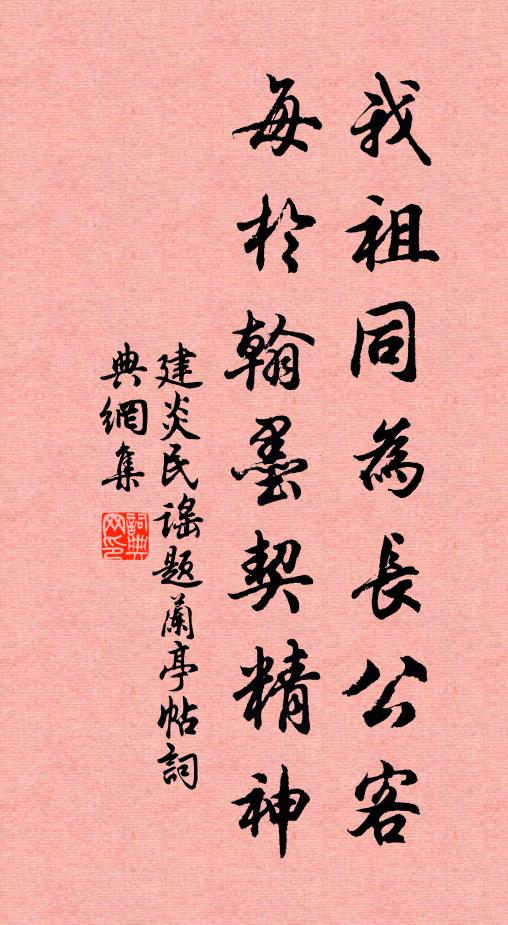 我祖同為長公客
每於翰墨契精神
建炎民謠題蘭亭帖詞
典網集
詞典網印